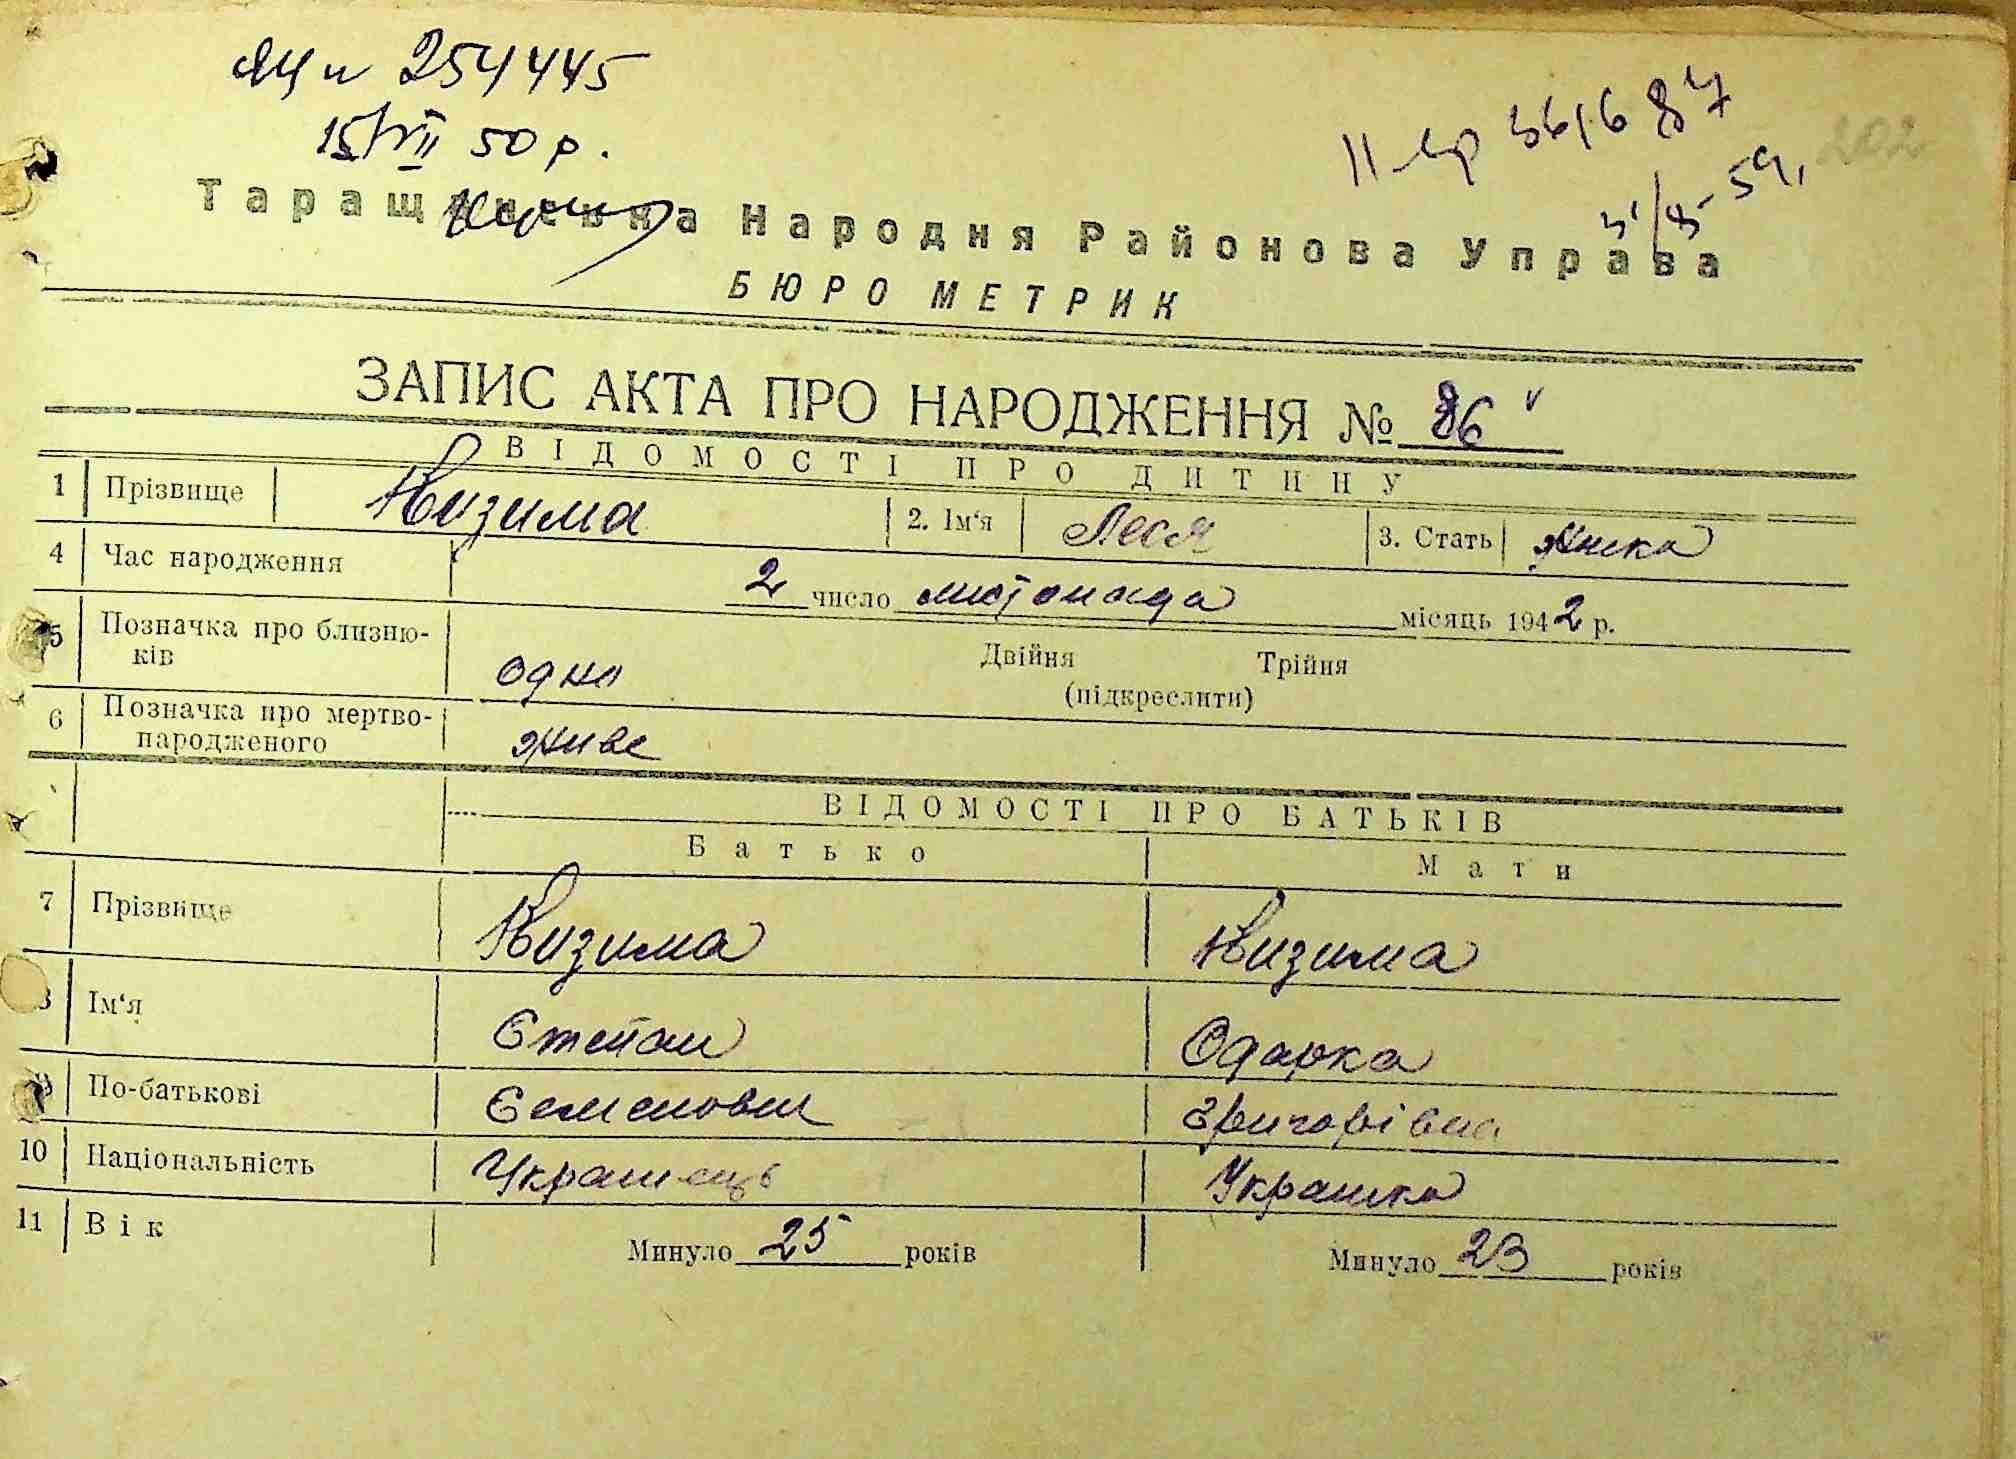 254445
15/VII 50 р.
202
Таращанська Народня Районова Управа
БЮРО МЕТРИК
ЗАПИС АКТА ПРО НАРОДЖЕННЯ № 86
ВІДОМОСТІ ПРО ДИТИНУ
1 Прізвище Кизима 2. Ім‘я Леся 3. Стать жінка
4 Час народження 2 число листопада місяць 1942 р.
5 Позначка про близнюків одно Двійня Трійня
(підкреслити)
6 Позначка про мертвонародженого живе
ВІДОМОСТІ ПРО БАТЬКІВ
Батько Мати
7 Прізвище Кизима Кизима
8 Ім‘я Степан Одарка
9 По-батькові Семенович Григорівна
10 Національність Українець Українка
11 Вік Минуло 25 років Минуло 23 років